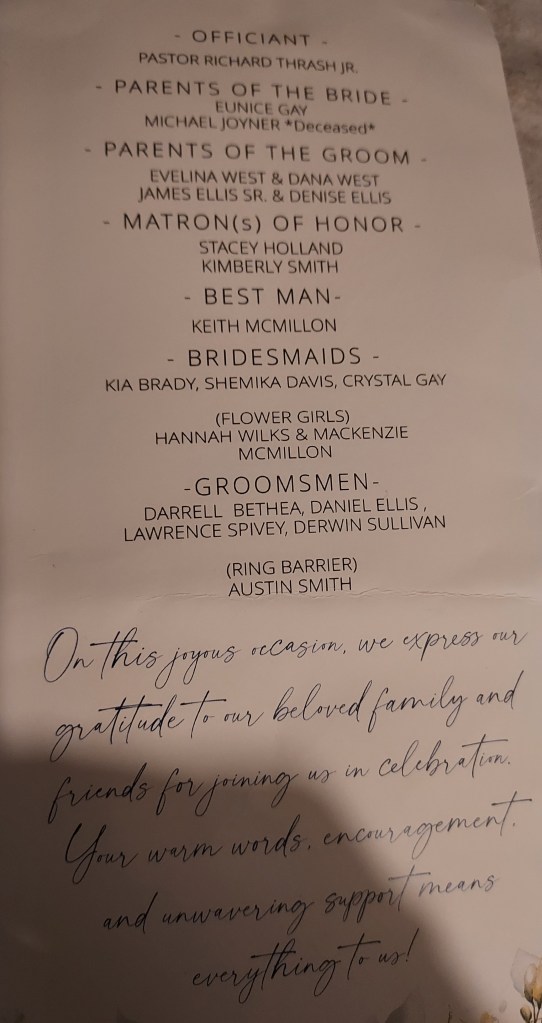 - OFFICIANT -
PASTOR RICHARD THRASH JR.
- PARENTS OF THE BRIDE -
EUNICE GAY
MICHAEL JOYNER *Deceased*
- PARENTS OF THE GROOM -
EVELINA WEST & DANA WEST
JAMES ELLIS SR. & DENISE ELLIS
- MATRON(s) OF HONOR -
STACEY HOLLAND
KIMBERLY SMITH
- BEST MAN-
KEITH MCMILLON
- BRIDESMAIDS -
KIA BRADY, SHEMIKA DAVIS, CRYSTAL GAY
(FLOWER GIRLS)
HANNAH WILKS & MACKENZIE
MCMILLON
-GROOMSMEN-
DARRELL BETHEA, DANIEL ELLIS ,
LAWRENCE SPIVEY, DERWIN SULLIVAN
(RING BARRIER)
AUSTIN SMITH
On this joyous occasion, we express our
gratitude to our beloved family and
friends for joining us in celebration.
Your warm words, encouragement,
and unwavering support means
everything to us!